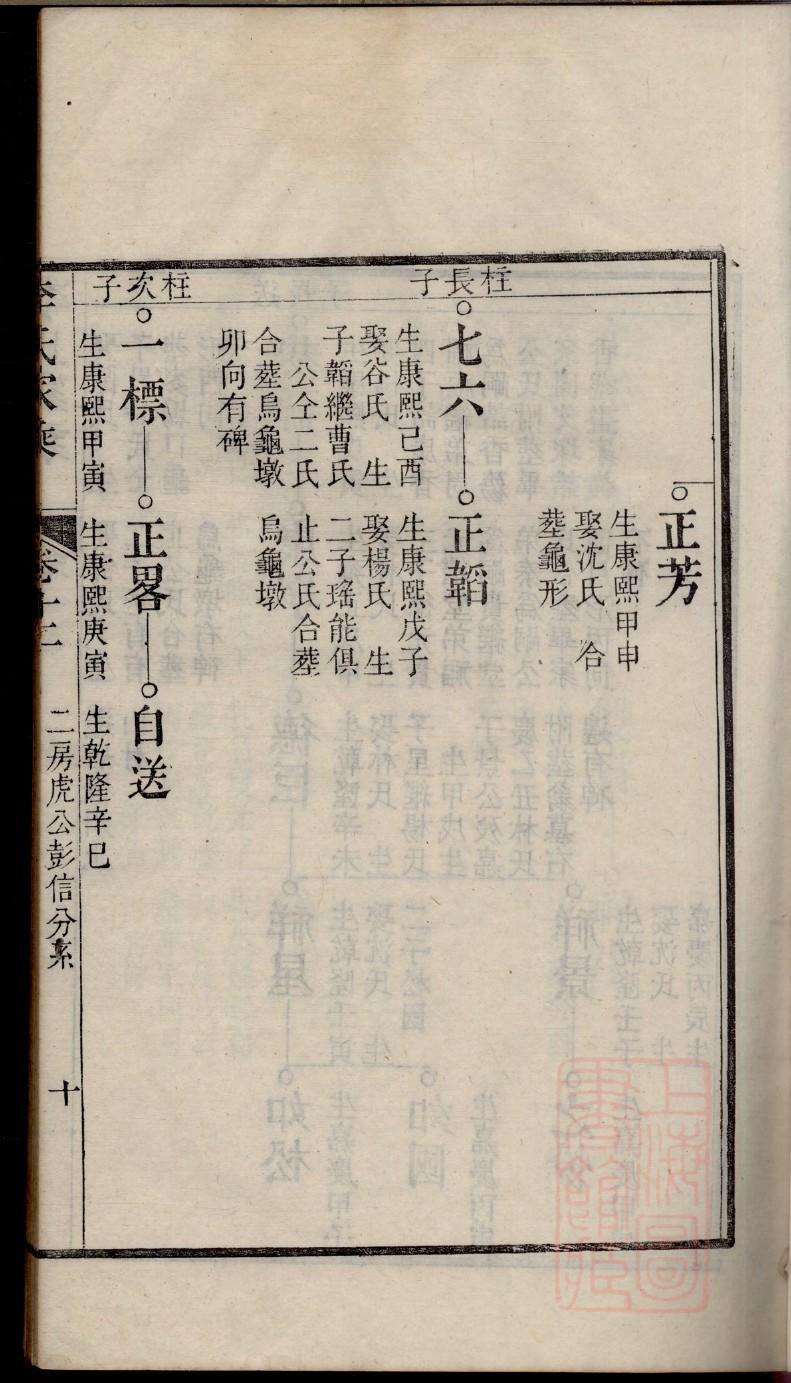 正芳
生康熙甲申
娶沈氏　合
塟龜形
柱長子
七六
生康熙己酉
娶谷氏　生
子韜繼曹氏
公仝二氏
合塟烏龜墩
卯向有碑
正韜
生康熙戊子
娶楊氏　生
二子瑤能俱
止公氏合塟
烏龜墩
柱次子
一標
生康熙甲寅
正畧
生康熙庚寅
自送
生乾隆辛巳
李氏家乘
卷十二
二房虎公彭信分系
十
上海圖書館藏